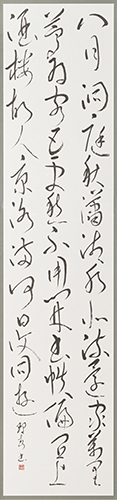 八月洞庭秋瀟湘水北流還家萬里
夢為客五更愁不用開書帙偏宜上
酒樓故人京洛滿何日復同遊